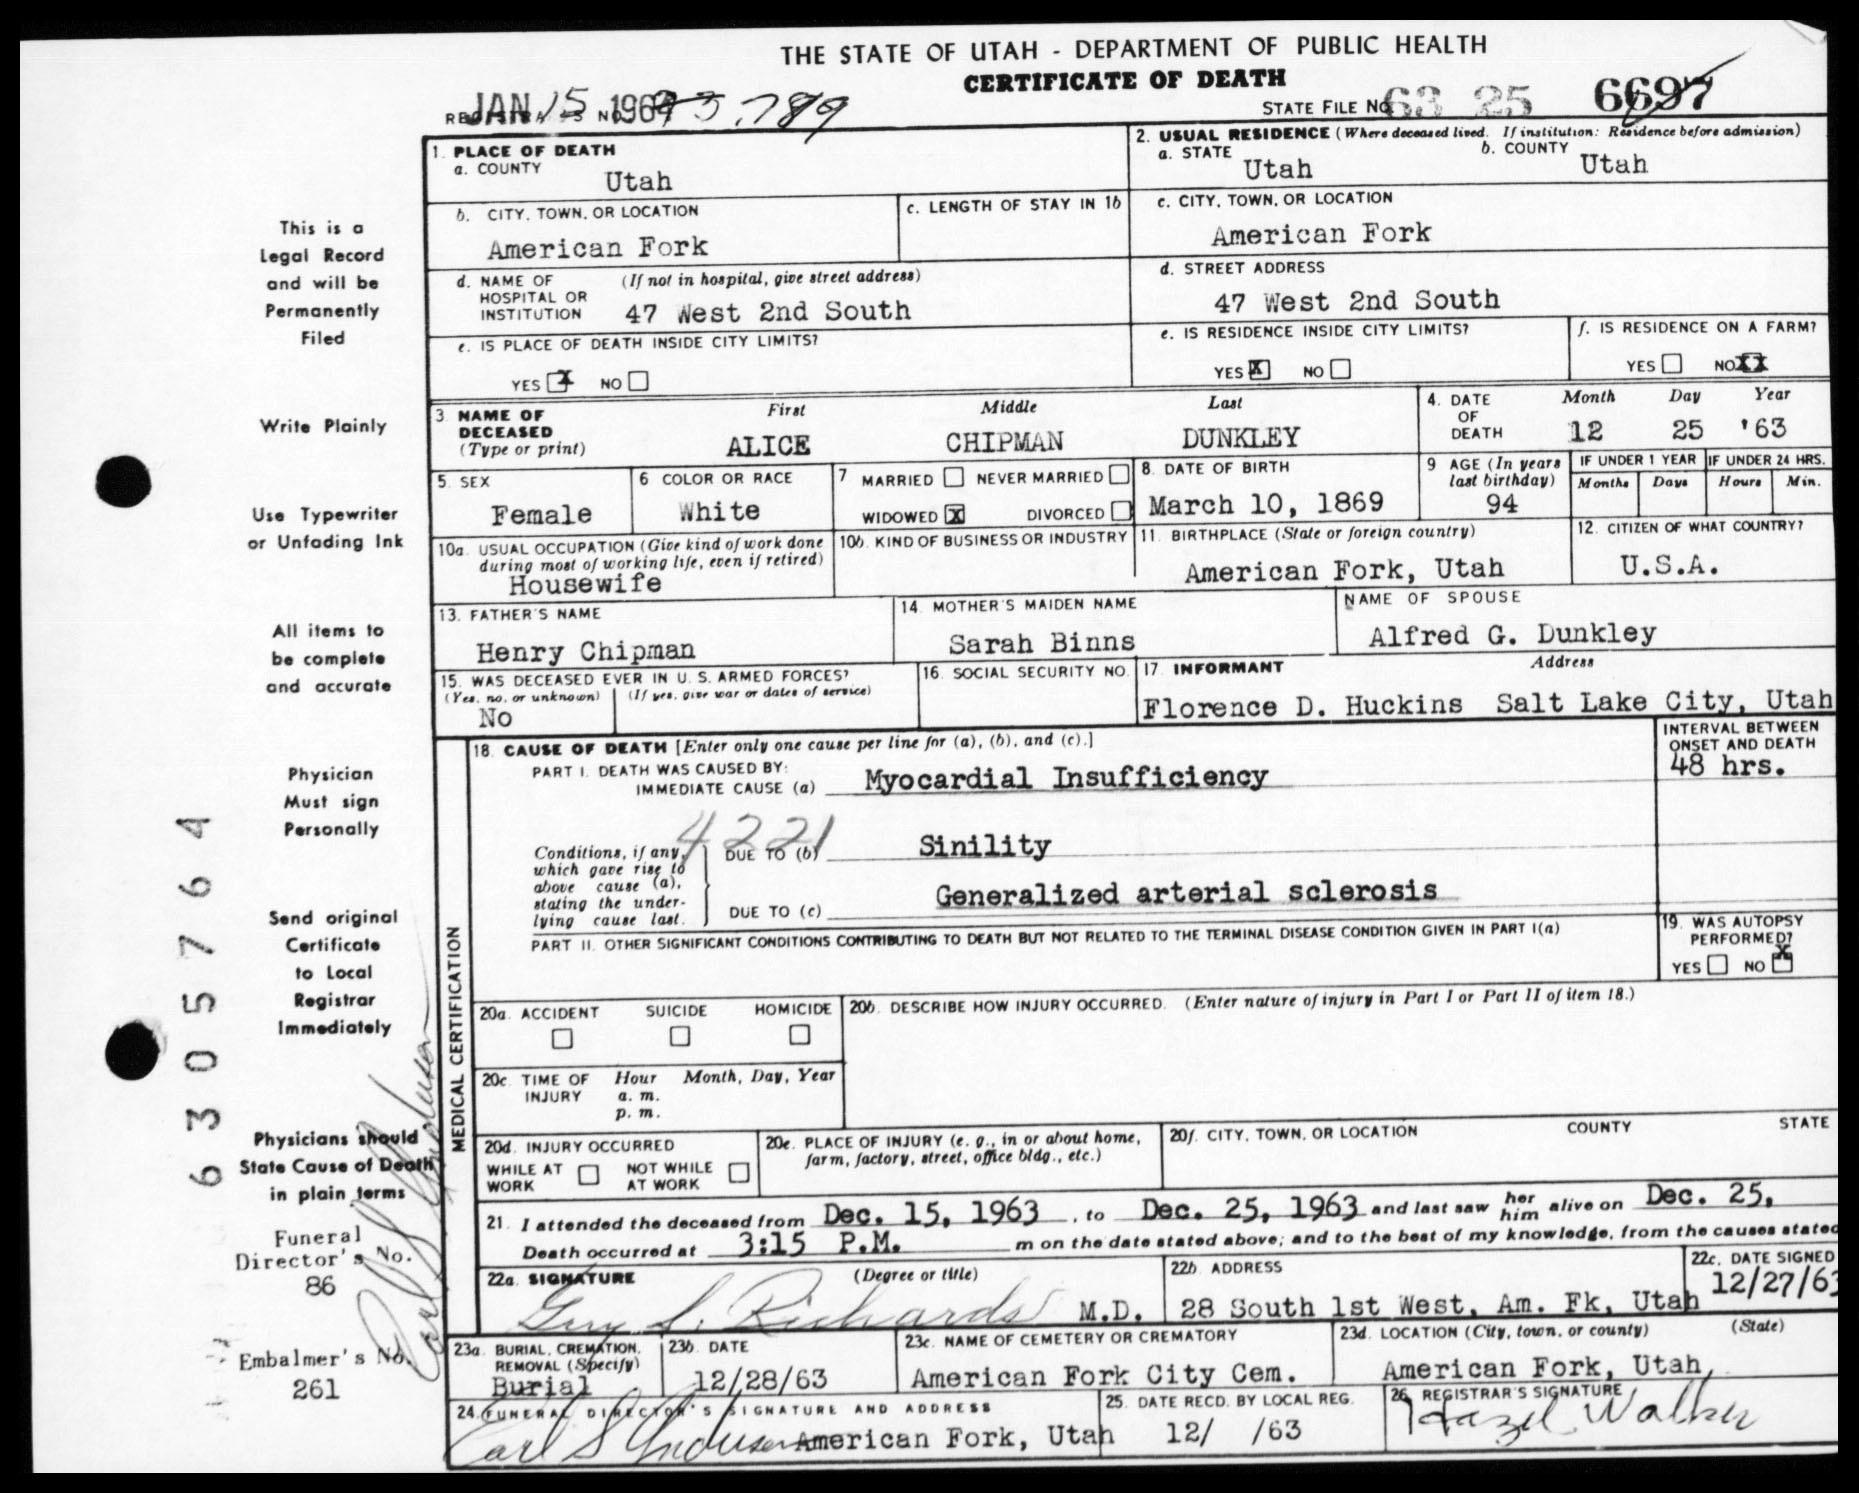 THE STATE OF UTAH - DEPARTMENT OF PUBLIC HEALTH
CERTIFICATE OF DEATH
JAN 15 196
STATE FILE NO. 63 25 6697
1. PLACE OF DEATH
a. COUNTY
Utah
2. USUAL RESIDENCE (Where deceased lived. If institution: Residence before admission)
a. STATE
Utah
b. COUNTY
Utah
b. CITY, TOWN, OR LOCATION
American Fork
c. LENGTH OF STAY IN 1b
c. CITY, TOWN, OR LOCATION
American Fork
d. NAME OF HOSPITAL OR INSTITUTION
(If not in hospital, give street address)
47 West 2nd South
d. STREET ADDRESS
47 West 2nd South
e. IS PLACE OF DEATH INSIDE CITY LIMITS?
YES X NO
e. IS RESIDENCE INSIDE CITY LIMITS?
YES X NO
f. IS RESIDENCE ON A FARM?
YES NO XX
3 NAME OF DECEASED
(Type or print)
First Middle Last
ALICE CHIPMAN DUNKLEY
4. DATE OF DEATH
Month Day Year
12 25 '63
5. SEX
Female
6 COLOR OR RACE
White
7 MARRIED NEVER MARRIED
WIDOWED X DIVORCED
8. DATE OF BIRTH
March 10, 1869
9 AGE (In years last birthday)
94
IF UNDER 1 YEAR
Months Days
IF UNDER 24 HRS.
Hours Min.
10a. USUAL OCCUPATION (Give kind of work done
during most of working life, even if retired)
Housewife
10b. KIND OF BUSINESS OR INDUSTRY
11. BIRTHPLACE (State or foreign country)
American Fork, Utah
12. CITIZEN OF WHAT COUNTRY?
U.S.A.
13. FATHER'S NAME
Henry Chipman
14. MOTHER'S MAIDEN NAME
Sarah Binns
NAME OF SPOUSE
Alfred G. Dunkley
15. WAS DECEASED EVER IN U. S. ARMED FORCES?
(Yes, no, or unknown) (If yes, give war or dates of service)
No
16. SOCIAL SECURITY NO.
17. INFORMANT Address
Florence D. Huckins Salt Lake City, Utah
MEDICAL CERTIFICATION
18. CAUSE OF DEATH [Enter only one cause per line for (a), (b), and (c).]
PART I. DEATH WAS CAUSED BY:
IMMEDIATE CAUSE (a) Myocardial Insufficiency
INTERVAL BETWEEN
ONSET AND DEATH
48 hrs.
4221
Conditions, if any,
which gave rise to
above cause (a),
stating the under-
lying cause last.
DUE TO (b) Sinility
DUE TO (c) Generalized arterial sclerosis
PART II. OTHER SIGNIFICANT CONDITIONS CONTRIBUTING TO DEATH BUT NOT RELATED TO THE TERMINAL DISEASE CONDITION GIVEN IN PART I(a)
19. WAS AUTOPSY
PERFORMED?
YES NO X
20a. ACCIDENT SUICIDE HOMICIDE
20b. DESCRIBE HOW INJURY OCCURRED. (Enter nature of injury in Part I or Part II of item 18.)
20c. TIME OF INJURY
Hour Month, Day, Year
a. m.
p. m.
20d. INJURY OCCURRED
WHILE AT WORK NOT WHILE AT WORK
20e. PLACE OF INJURY (e. g., in or about home,
farm, factory, street, office bldg., etc.)
20f. CITY, TOWN, OR LOCATION COUNTY STATE
21. I attended the deceased from Dec. 15, 1963, to Dec. 25, 1963 and last saw her him alive on Dec. 25,
Death occurred at 3:15 P.M. m on the date stated above; and to the best of my knowledge, from the causes stated
22a. SIGNATURE (Degree or title)
Guy S. Richards M.D.
22b. ADDRESS
28 South 1st West, Am. Fk, Utah
22c. DATE SIGNED
12/27/63
23a. BURIAL, CREMATION,
REMOVAL (Specify)
Burial
23b. DATE
12/28/63
23c. NAME OF CEMETERY OR CREMATORY
American Fork City Cem.
23d. LOCATION (City, town, or county) (State)
American Fork, Utah
24. FUNERAL DIRECTOR'S SIGNATURE AND ADDRESS
American Fork, Utah
25. DATE RECD. BY LOCAL REG.
12/ /63
26. REGISTRAR'S SIGNATURE
Hazel Walker
This is a
Legal Record
and will be
Permanently
Filed
Write Plainly
Use Typewriter
or Unfading Ink
All items to
be complete
and accurate
Physician
Must sign
Personally
Send original
Certificate
to Local
Registrar
Immediately
Physicians should
State Cause of Death
in plain terms
Funeral
Director's No.
86
Embalmer's No.
261
6305764